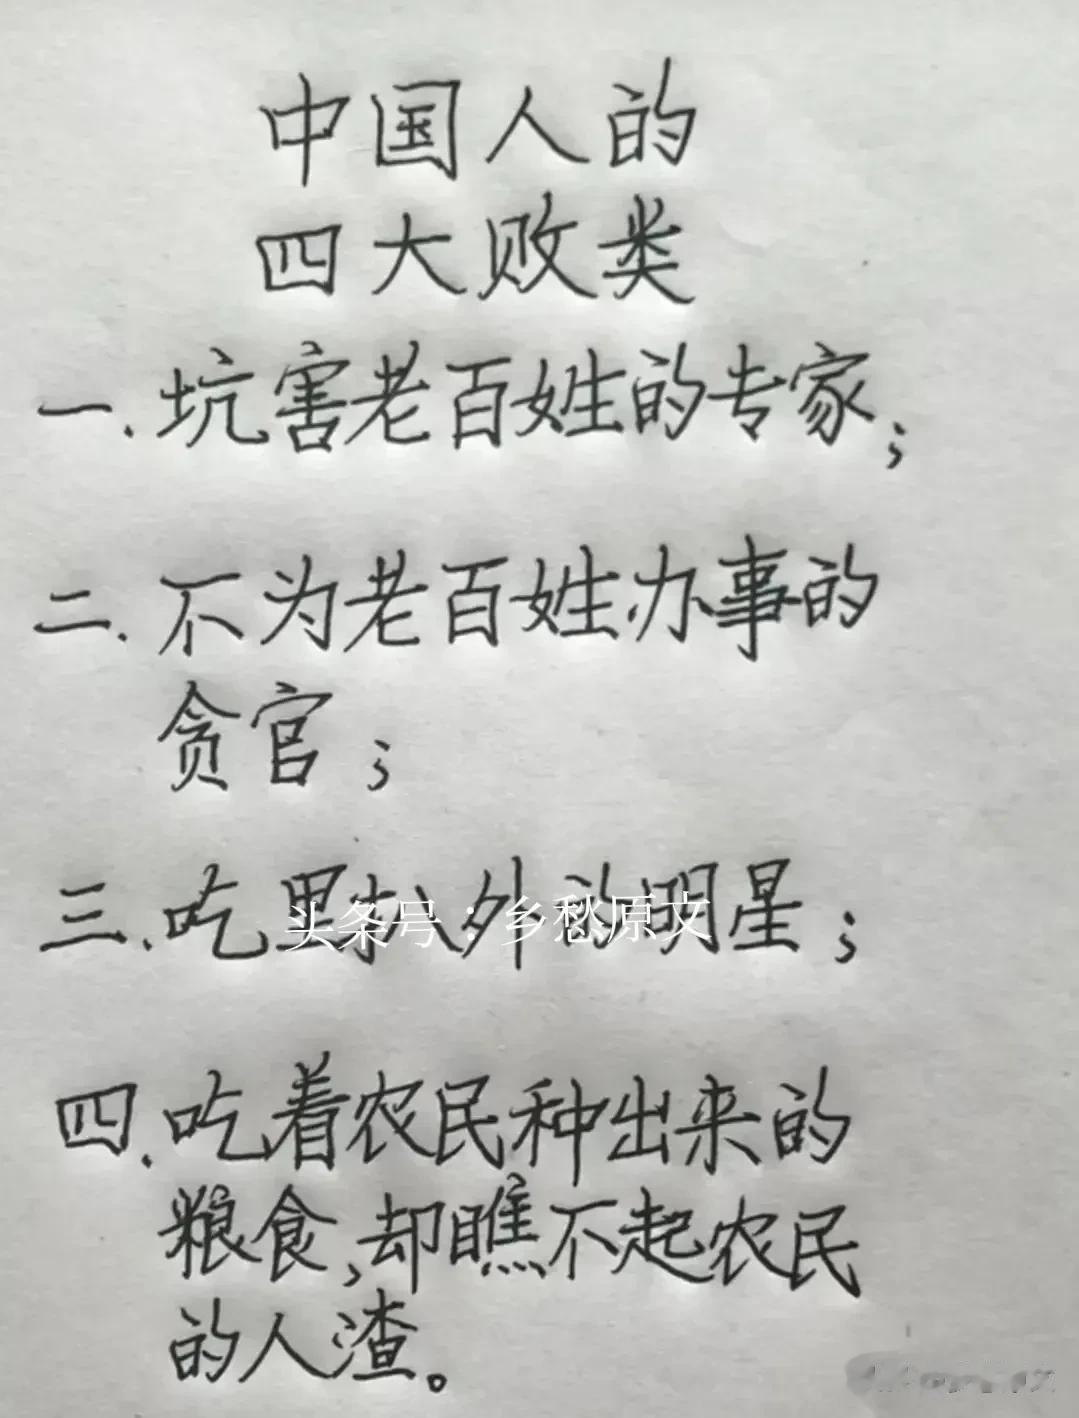 中国人的
四大败类
一.坑害老百姓的专家;
二.不为老百姓办事的
贪官;
三.吃里扒外的明星;
头条号:乡愁原文
四.吃着农民种出来的
粮食,却瞧不起农民
的人渣。